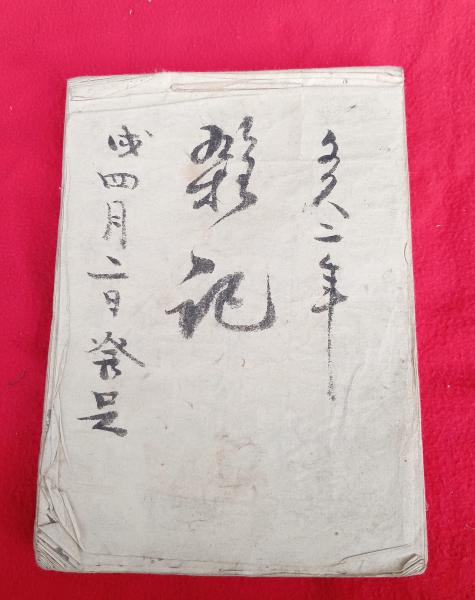 文久二年
雜記
戌四月二日発足